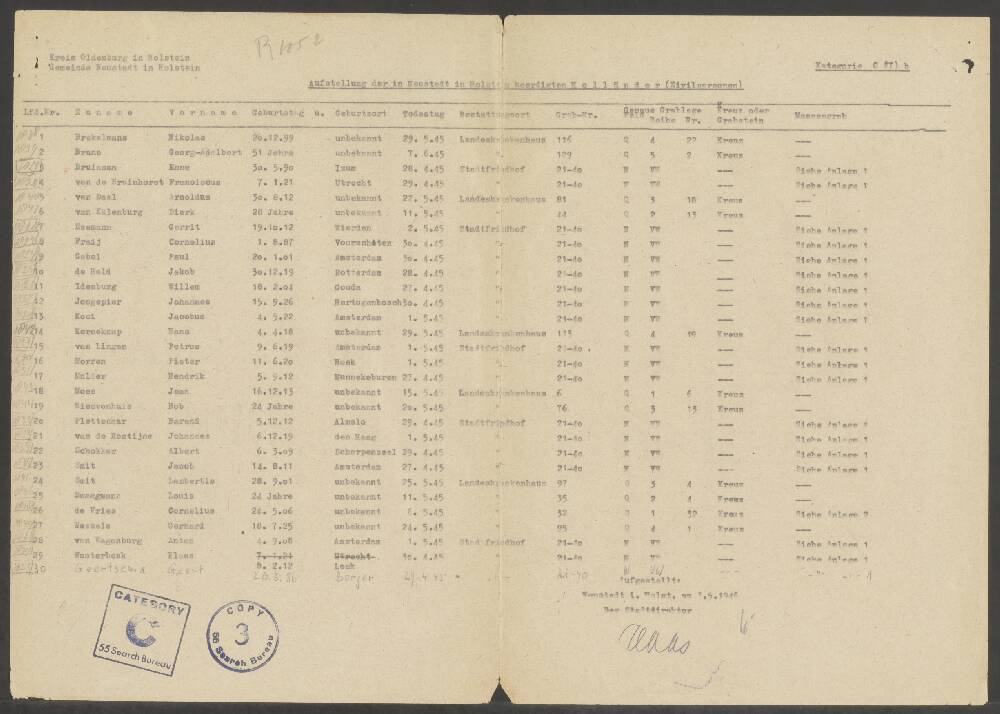 R 1052
Kreis Oldenburg in Holstein
Gemeinde Neustadt in Holstein
Kategorie C (I) b
Aufstellung der in Neustadt in Holstein beerdigten H o l l ä n d e r (Zivilpersonen)
Lfd.Nr. Z u n a m e V o r n a m e Geburtstag u. Geburtsort Todestag Bestattungsort Grab-Nr. Genaue Grablage Feld Reihe Nr. Kreuz oder Grabstein Massengrab
1 Brekelmans Nikolas 20.12.99 unbekannt 29. 5.45 Landeskrankenhaus 116 G 4 22 Kreuz ---
2 Bruno Georg-Adelbert 51 Jahre unbekannt 7. 6.45 " 129 G 5 2 Kreuz ---
3 Bruinsma Enne 30. 5.90 28. 4.45 Stadtfriedhof 21-40 N VW --- Siehe Anlage 1
4 van de Bruinhorst Franciscus 7. 1.21 Utrecht 29. 4.45 " 21-40 N VW --- Siehe Anlage 1
5 van Daal Arnoldus 30. 8.12 unbekannt 22. 5.45 Landeskrankenhaus 81 G 3 18 Kreuz ---
6 van Kulenburg Dierk 28 Jahre unbekannt 11. 5.45 " 44 G 2 13 Kreuz ---
7 Gerrit 19.10.12 Wierden 2. 5.45 Stadtfriedhof 21-40 N VW --- Siehe Anlage 1
8 Fraij Cornelius 1. 8.87 Voorschoten 30. 4.45 " 21-40 N VW --- Siehe Anlage 1
9 Gobel Paul 20. 1.01 Amsterdam 30. 4.45 " 21-40 N VW --- Siehe Anlage 1
10 de Held Jakob 30.12.19 Rotterdam 28. 4.45 " 21-40 N VW --- Siehe Anlage 1
11 Idenburg Willem 18. 2.01 Gouda 27. 4.45 " 21-40 N VW --- Siehe Anlage 1
12 Jongepier Johannes 15. 9.26 Hertogenbosch 30. 4.45 " 21-40 N VW --- Siehe Anlage 1
13 Kooi Jacobus 4. 5.22 Amsterdam 1. 5.45 " 21-40 N VW --- Siehe Anlage 1
14 Kornekamp Hans 4. 4.18 unbekannt 29. 5.45 Landeskrankenhaus 113 G 4 19 Kreuz ---
15 van Lingen Petrus 9. 6.19 Amsterdam 1. 5.45 Stadtfriedhof 21-40 N VW --- Siehe Anlage 1
16 Morren Pieter 11. 6.20 Hoek 1. 5.45 " 21-40 N VW --- Siehe Anlage 1
17 Mulder Hendrik 5. 9.12 Munnekeburen 27. 4.45 " 21-40 N VW --- Siehe Anlage 1
18 Jean 16.12.13 unbekannt 15. 5.45 Landeskrankenhaus 6 G 1 6 Kreuz ---
19 Nieuvenhuis Bob 24 Jahre unbekannt 20. 5.45 " 76 G 3 13 Kreuz ---
20 Plettenaar Barend 5.12.12 Almelo 29. 4.45 Stadtfriedhof 21-40 N VW --- Siehe Anlage 1
21 van de Rostijne Johannes 6.12.19 den Haag 1. 5.45 " 21-40 N VW --- Siehe Anlage 1
22 Schokker Albert 6. 3.09 Scherpenzeel 29. 4.45 " 21-40 N VW --- Siehe Anlage 1
23 Smit Jacob 14. 8.11 Amsterdam 27. 4.45 " 21-40 N VW --- Siehe Anlage 1
24 Smit Lambertis 28. 9.01 unbekannt 25. 5.45 Landeskrankenhaus 97 G 3 4 Kreuz ---
25 Louis 24 Jahre unbekannt 11. 5.45 " 35 G 2 4 Kreuz ---
26 de Vries Cornelius 24. 5.06 unbekannt 6. 5.45 " 32 G 1 32 Kreuz Siehe Anlage 2
27 Wessels Gerhard 18. 7.25 unbekannt 24. 5.45 " 95 G 4 1 Kreuz ---
28 van Wagenburg Anton 4. 9.08 Amsterdam 1. 5.45 Stadtfriedhof 21-40 N VW --- Siehe Anlage 1
29 Wusterbeek Klaas 7. 1.21 Utrecht 30. 4.45 " 21-40 N VW --- Siehe Anlage 1
8. 2.12 Leek
30 Geertsema Geert 20.3.86 Borger 29.4.45 " 21-40 N VW
Aufgestellt:
Neustadt i. Holst. am 1.5.1946
Der Stadtdirektor
CATEGORY
C
55 Search Bureau
COPY
3
55 Search Bureau